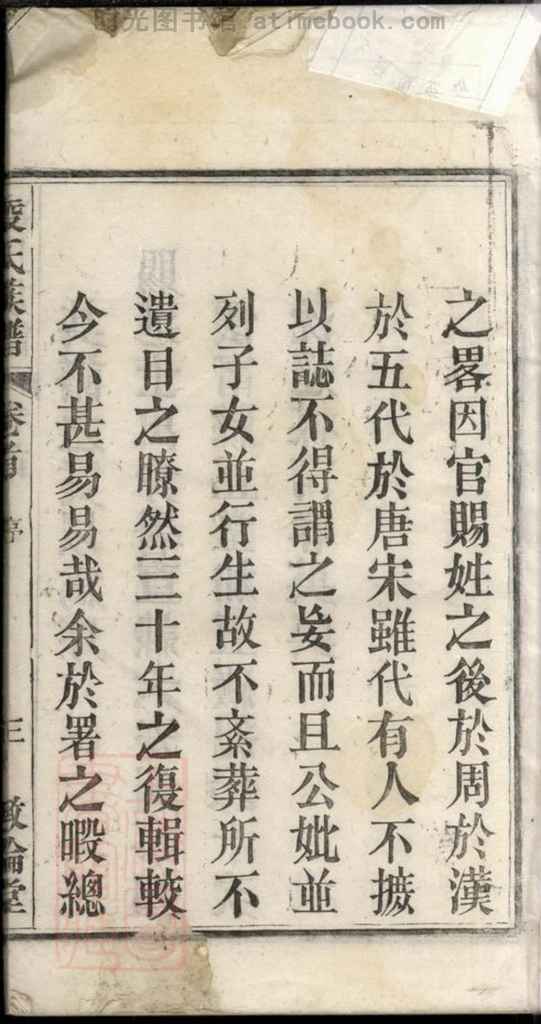 时光图书馆 atimebook.com
之畧因官賜姓之後於周於漢
於五代於唐宋雖代有人不摭
以誌不得謂之妄而且公妣並
列子女並行生故不紊葬所不
遺目之瞭然三十年之復輯較
今不甚易易哉余於署之暇總
氏族譜 卷首 三 敦倫堂